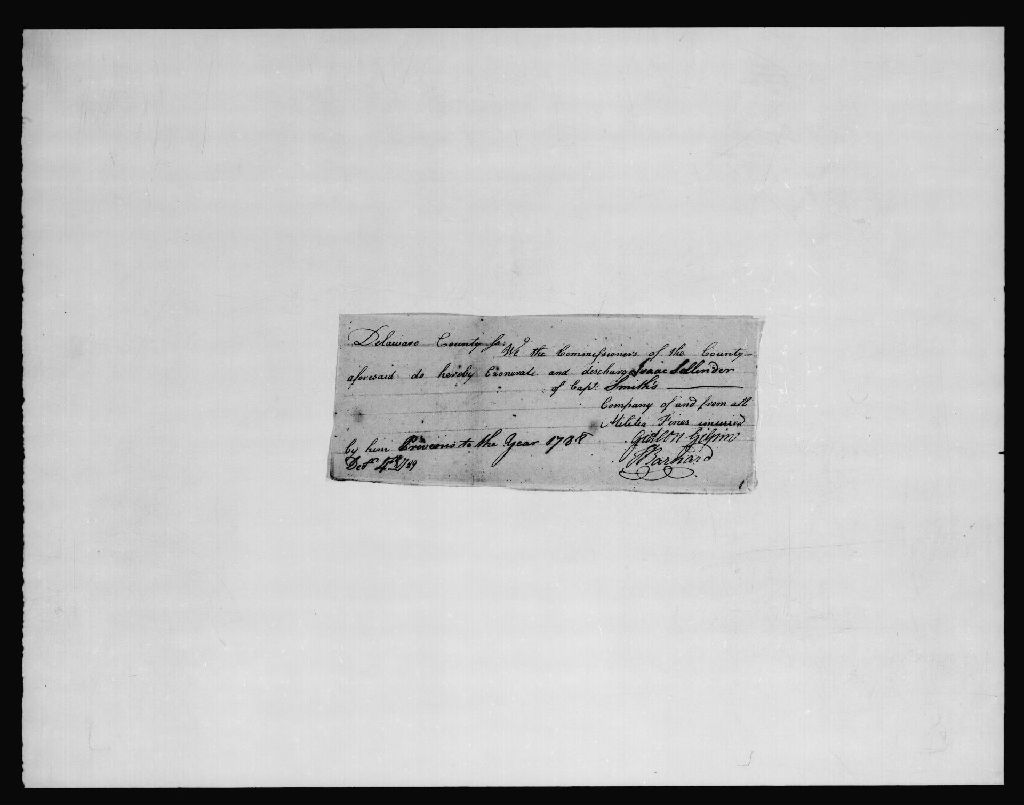 Delaware County Ss.
We the Commissioners of the County
aforesaid do hereby Exonerate and discharge Isaac Sellinder
of Capt. Smith's
Company of and from all
Militia Fines incurred
by him Previous to the Year 1788
Decr 4th 1789